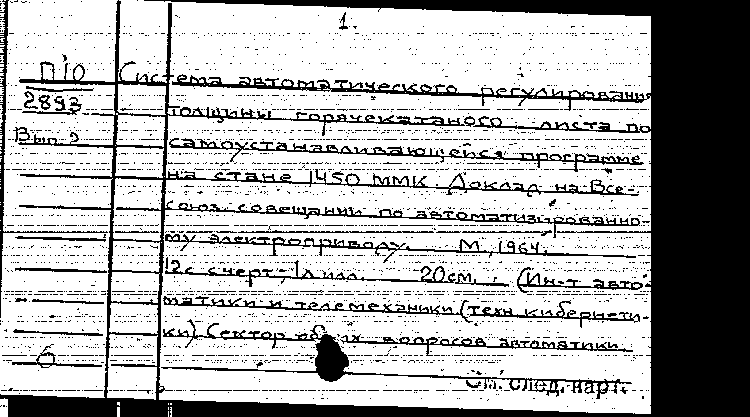 1.
П10 Система автоматического регулирования
2893 толщины горячекатаного листа по
Вып. 2 самоустанавливающейся программе
на стане 1450 ММК. Доклад на Все-
союз. совещании по автоматизированно-
му электроприводу. М., 1964.
12с с черт., 1л илл. 20см. (Ин-т авто-
матики и телемеханики (техн. кибернети-
ки). Сектор общих вопросов автоматики
б
См. след. карт.